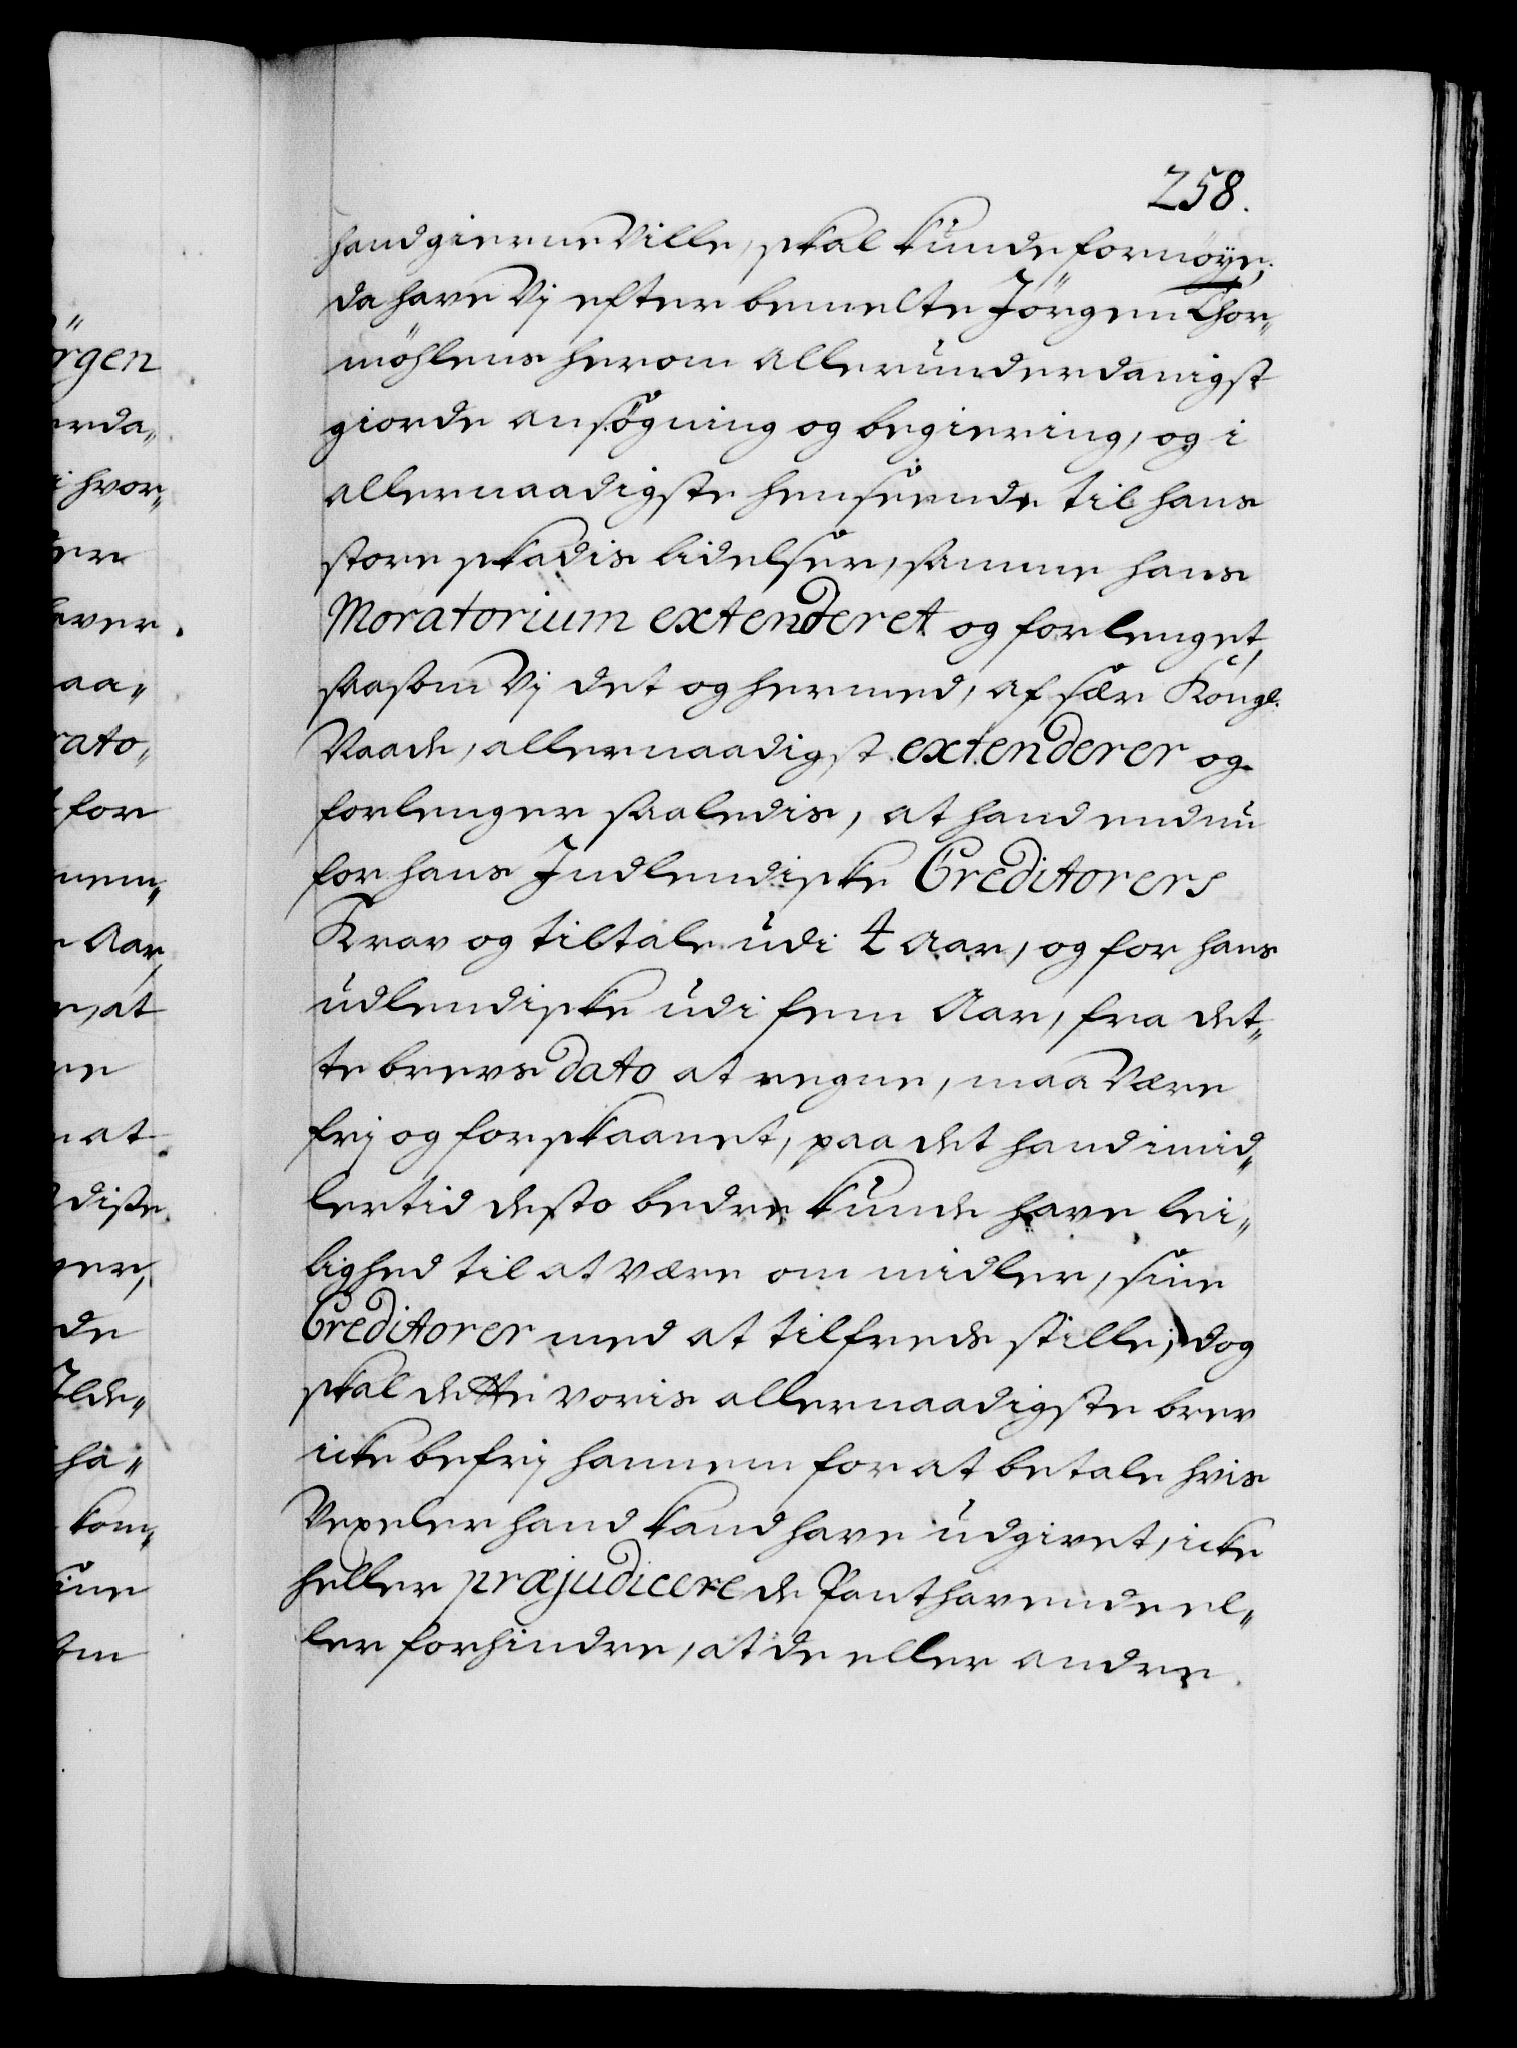 258.
hand gierne Ville, skal kunde fornøye;
da have Vj efter bemelte Jörgen Thor„
möhlens herom allerunderdanigst
giorde ansögning og begiering, og i
allernaadigste henseende til hans
store skadis lidelser, samme hans
Moratorium extenderet og forlenget,
saasom Vj det og hermed, af sær Kongl.
Naade, allernaadigst extenderer og
forlenger saaledis, at hand endnu
for hans Indlendiske Creditorers
Krav og tiltale udi 4 Aar, og for hans
udlendiske udi fem Aar, fra det„
te brevs dato at regne, maa Være
frj og forskaanet, paa det hand imid„
lertid desto bedre kunde have lei„
lighed til at være om midler, sine
Creditorer med at tilfreds stille; dog
skal dette voris allernaadigste brev
icke befrj hannem for at betale hvis
Vexeler hand kand have udgivet, icke
heller præjudicere de Panthavende el„
ler forhindre, at de eller andre
rgen
erda„
i hvor„
aa„
rato„
for
nem„
Aar,
at
at
diste
ger,
de
Ilde„
ha„
kom„